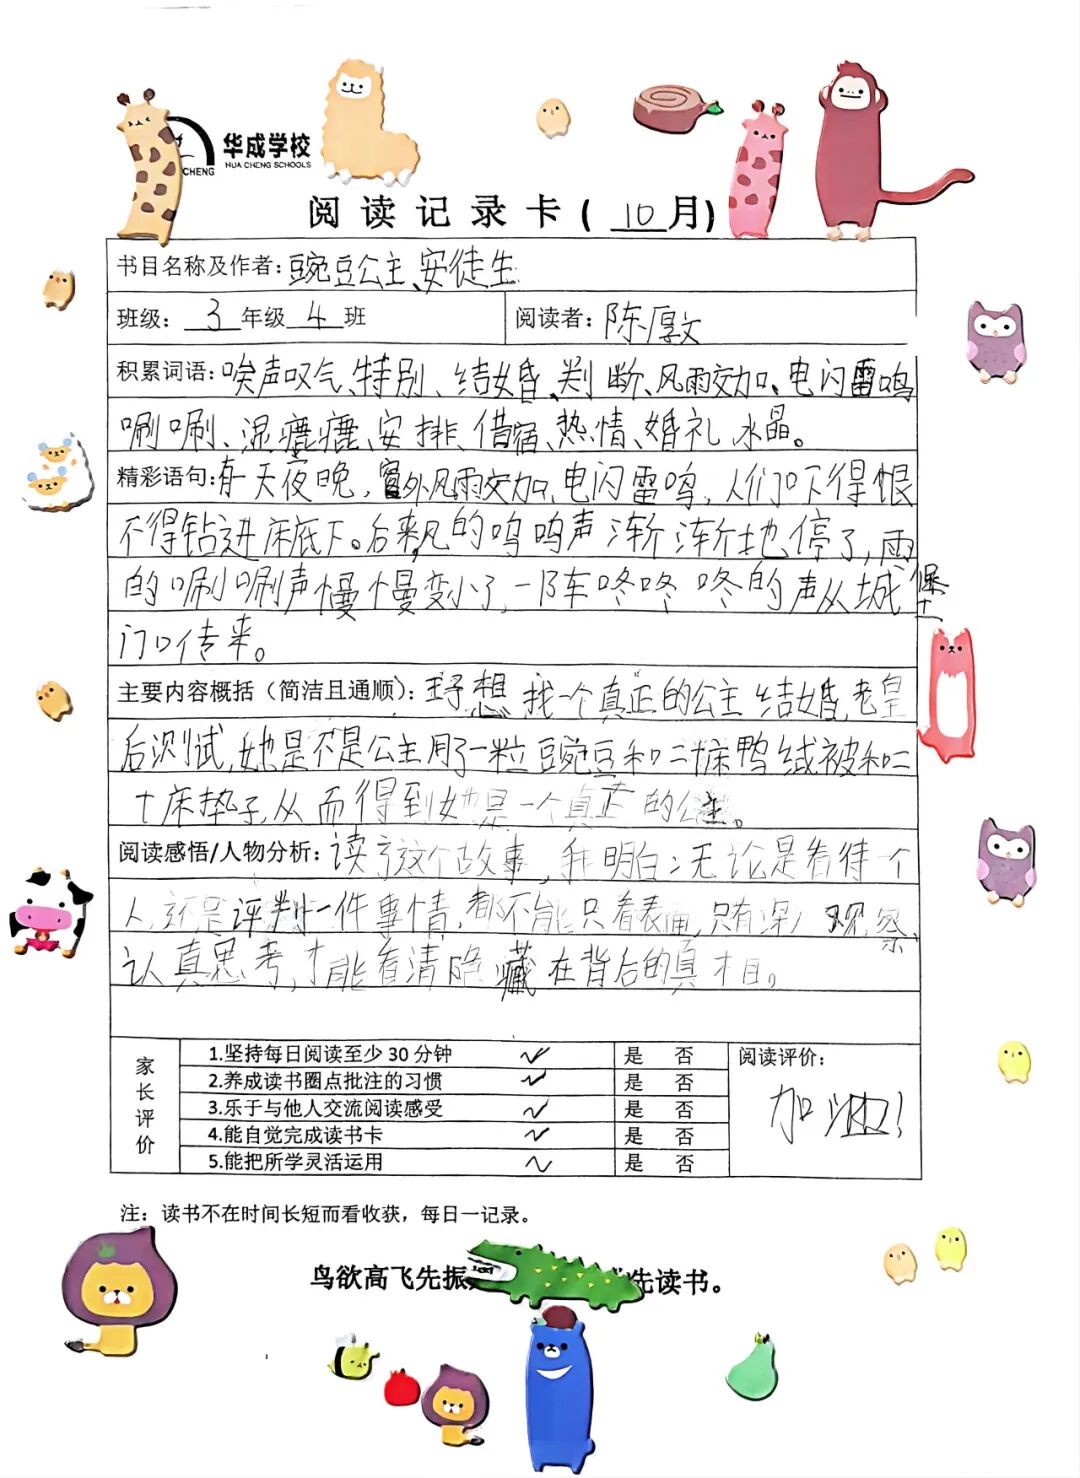 CHENG
华成学校
HUA CHENG SCHOOLS
阅读记录卡（10月）
书目名称及作者：豌豆公主、安徒生
班级：3年级4班 阅读者：陈厚文
积累词语：唉声叹气、特别、结婚、判断、风雨交加、电闪雷鸣
唰唰、湿漉漉、安排、借宿、热情、婚礼、水晶。
精彩语句：有一天夜晚，窗外风雨交加、电闪雷鸣，人们吓得恨
不得钻进床底下。后来风的呜呜声渐渐地停了，雨
的唰唰声慢慢变小了，一阵咚咚咚的声从城堡
门口传来。
主要内容概括（简洁且通顺）：王子想找一个真正的公主结婚，老皇
后测试她是不是公主用了一粒豌豆和二十床鸭绒被和二
十床垫子，从而得到她是一个真正的公主。
阅读感悟/人物分析：读了这个故事，我明白：无论是看待一个
人，还是评判一件事情，都不能只看表面，只有深入观察、
认真思考，才能看清隐藏在背后的真相。
家长评价
1.坚持每日阅读至少30分钟 ✓ 是 否
2.养成读书圈点批注的习惯 ✓ 是 否
3.乐于与他人交流阅读感受 ✓ 是 否
4.能自觉完成读书卡 ✓ 是 否
5.能把所学灵活运用 ✓ 是 否
阅读评价：
加油！
注：读书不在时间长短而看收获，每日一记录。
鸟欲高飞先振 先读书。